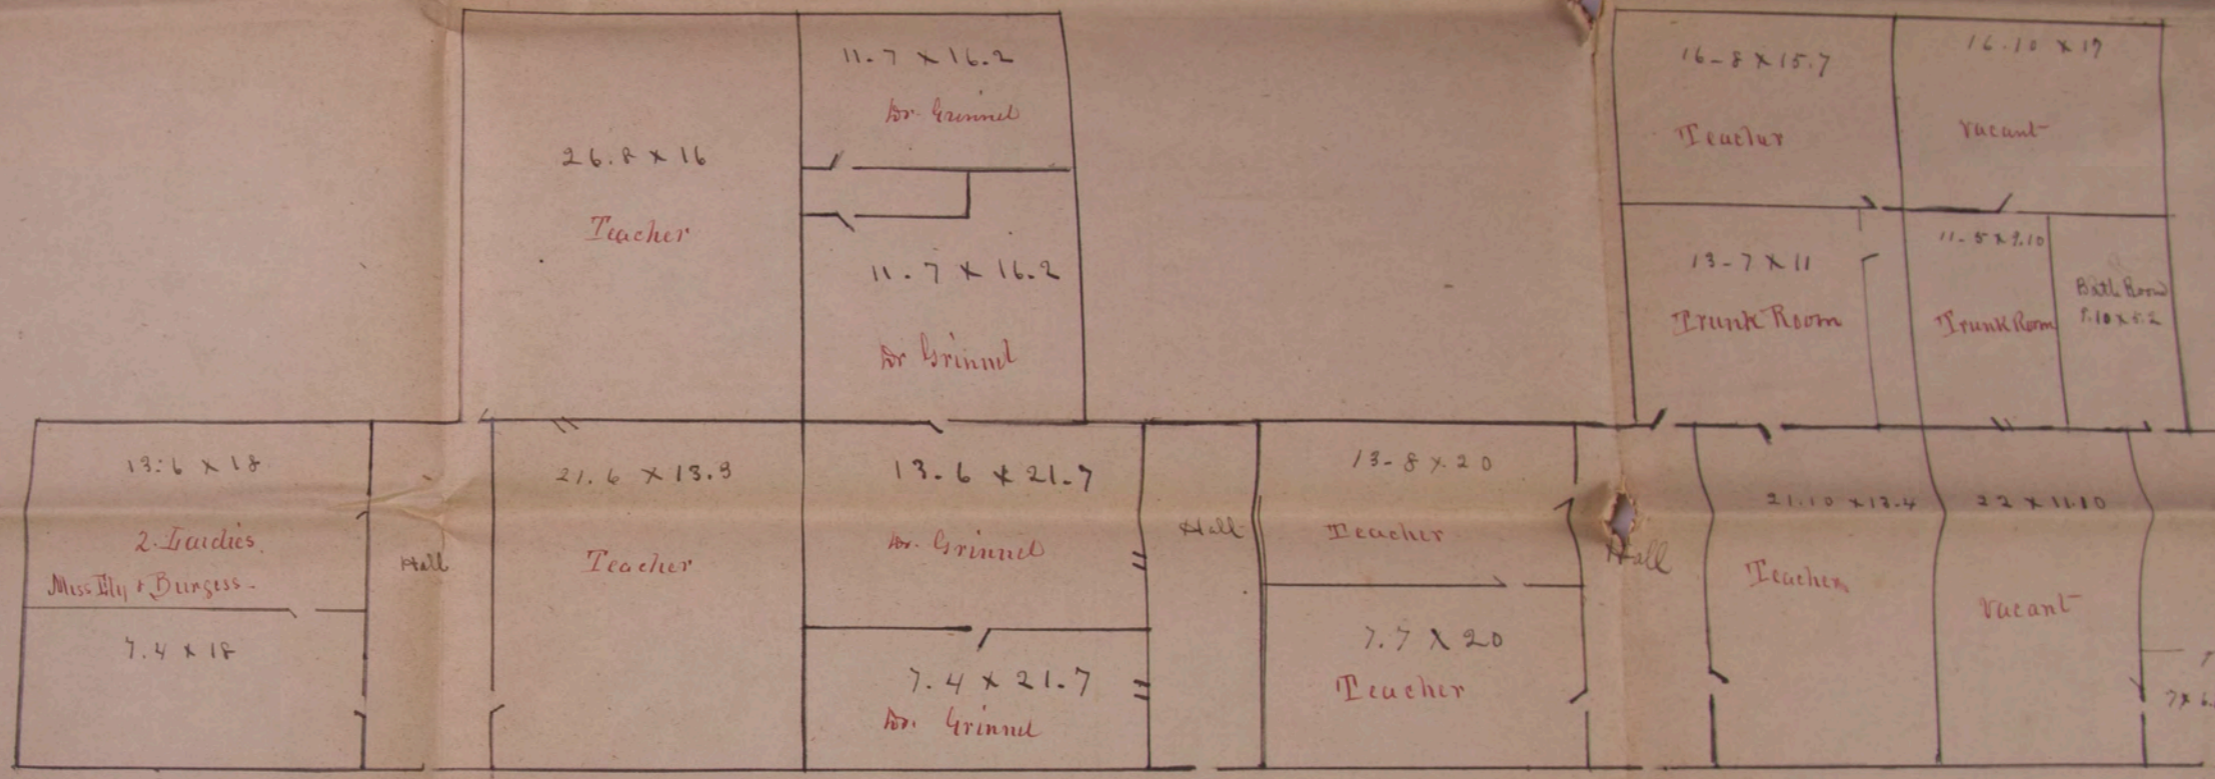 11.7 x 16.2
Dr. Grinnel
26.8 x 16
Teacher
11.7 x 16.2
Dr Grinnel
16-8 x 15.7
Teacher
16.10 x 17
vacant
13-7 x 11
Trunk Room
11-5 x 9.10
Trunk Room
Bath Room
9.10 x 5.2
13.6 x 18
2. Laidies
Miss Ely & Burgess-
7.4 x 18
Hall
21.6 x 13.9
Teacher
13.6 x 21.7
Dr. Grinnel
7.4 x 21.7
Dr. Grinnel
Hall
13-8 x 20
Teacher
7.7 x 20
Teacher
Hall
21.10 x 13.4
Teacher
22 x 11.10
vacant